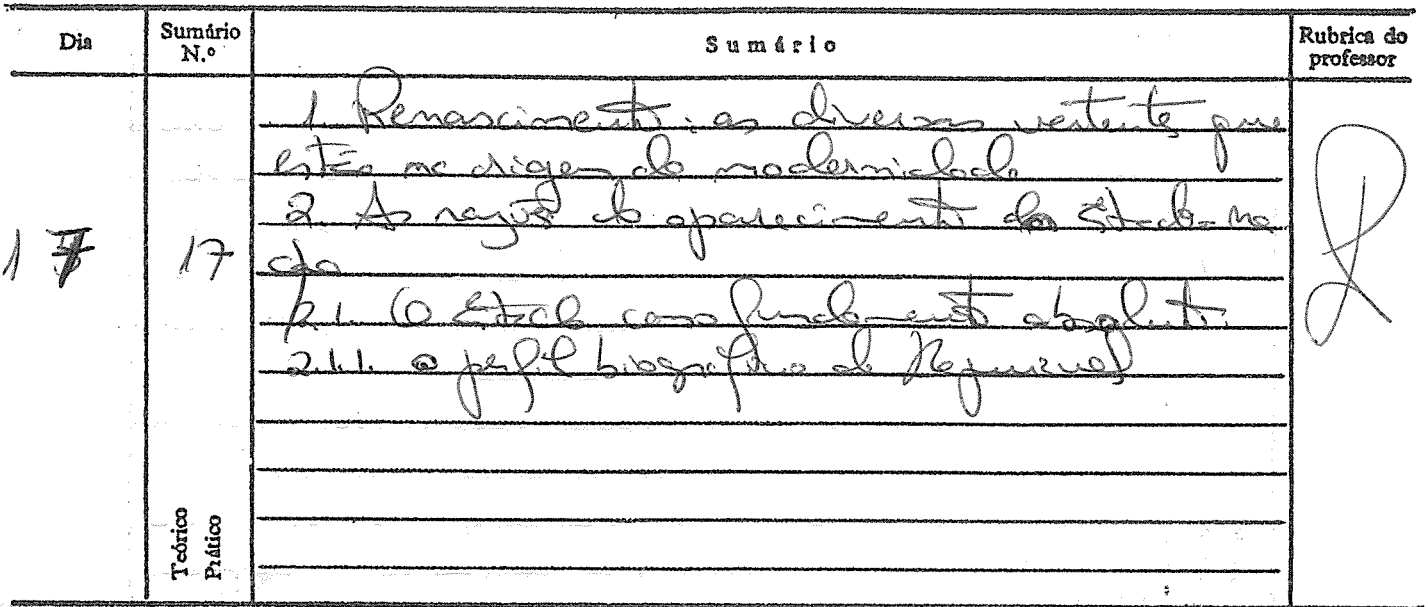 Dia
Sumário N.º
Sumário
Rubrica do professor
1. Renascimento: as diversas vertentes que
estão na origem da modernidade
2. As razões do aparecimento do Estado-na
ção
2.1. O Estado como fundamento absoluto.
2.1.1. O perfil biográfico de Maquiavel
17
17
Teórico
Prático